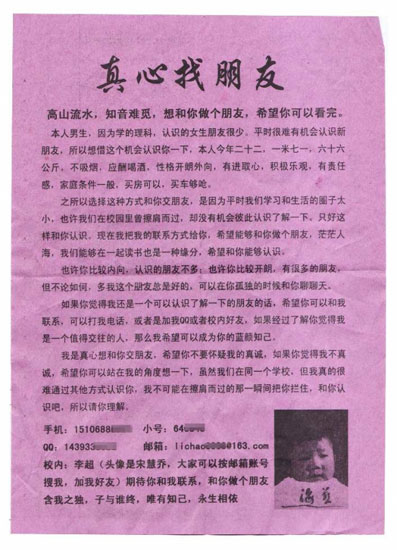 真心找朋友
高山流水，知音难觅，想和你做个朋友，希望你可以看完。
本人男生，因为学的理科，认识的女生朋友很少，平时很难有机会认识新
朋友，所以想借这个机会认识你一下，本人今年二十二，一米七一，六十六
公斤，不吸烟，应酬喝酒，性格开朗外向，有进取心，积极乐观，有责任
感，家庭条件一般，买房可以，买车够呛。
之所以选择这种方式和你交朋友，是因为平时我们学习和生活的圈子太
小，也许我们在校园里曾擦肩而过，却没有机会彼此认识了解一下。只好这
样和你认识，现在我把我的联系方式给你，希望能够和你做个朋友，茫茫人
海，我们能够在一起读书也是一种缘分，希望和你能够认识。
也许你比较内向，认识的朋友不多；也许你比较开朗，有很多的朋友，
但不论如何，多我这个朋友总是好的，可以在你孤独的时候和你聊聊天。
如果你觉得我还是一个可以认识了解一下的朋友的话，希望你可以和我
联系，可以打我电话，或者是加我QQ或者校内好友，如果经过了解你觉得我
是一个值得交往的人，那么我希望可以成为你的蓝颜知己。
我是真心想和你交朋友，希望你不要怀疑我的真诚，如果你觉得我不真
诚，希望你可以站在我的角度想一下，虽然我们在同一个学校，但我真的很
难通过其他方式认识你，我不可能在擦肩而过的那一瞬间把你拦住，和你认
识吧，所以请你理解。
手机：15106888 小号：64
QQ：143933 邮箱：lichao @163.com
校内：李超（头像是宋慧乔，大家可以按邮箱账号
搜我，加我好友）期待你和我联系，和你做个朋友
含我之独，子与谁终，唯有知己，永生相依